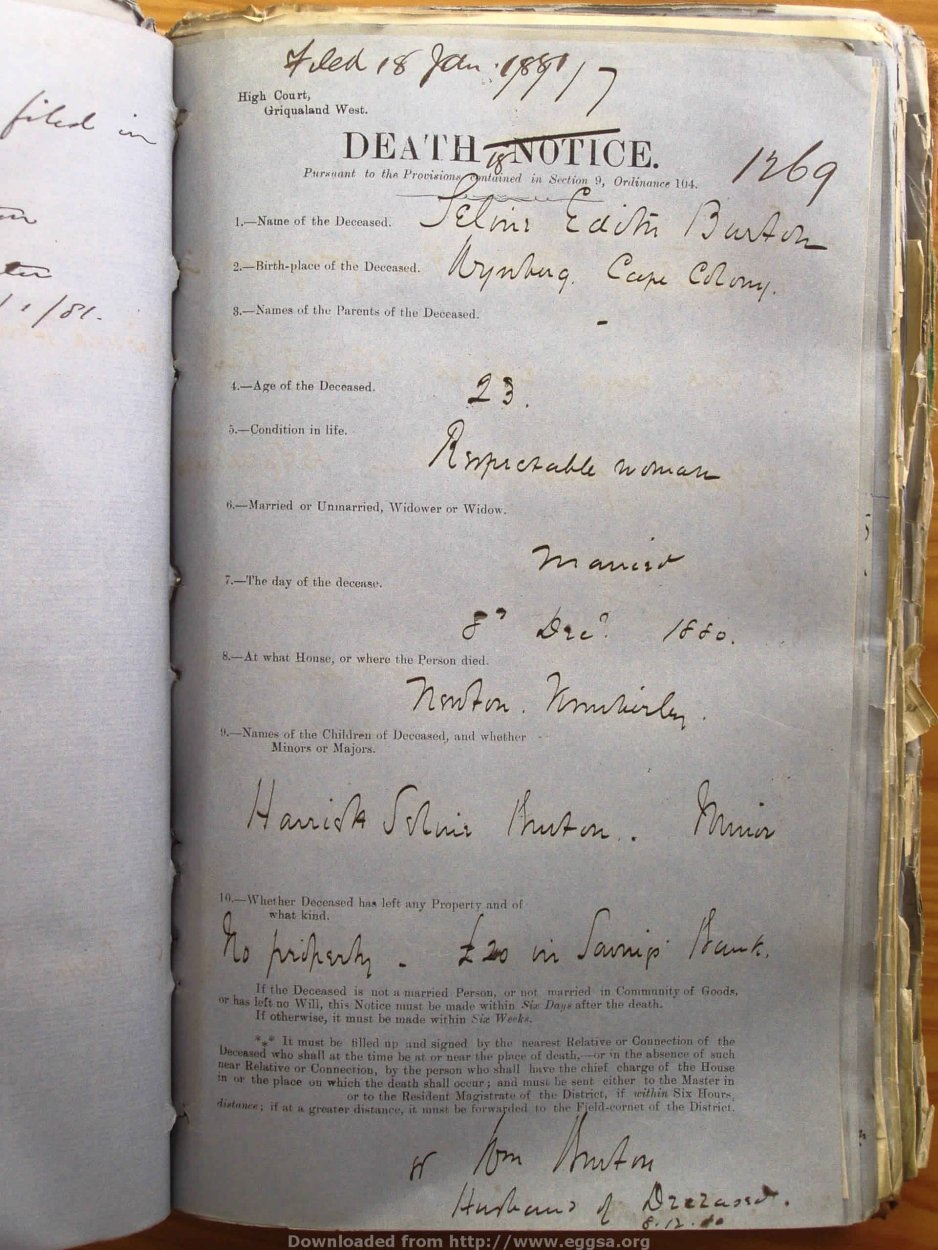 filed in
/ 1 /81.
Filed 18 Jan. 1881/7
High Court,
Griqualand West.
DEATH NOTICE.
18
1269
Pursuant to the Provisions contained in Section 9, Ordinance 104.
1.—Name of the Deceased. Selvie Edith Burton
2.—Birth-place of the Deceased. Wynberg. Cape Colony.
3.—Names of the Parents of the Deceased.
-
4.—Age of the Deceased. 23.
5.—Condition in life.
Respectable woman
6.—Married or Unmarried, Widower or Widow.
Married
7.—The day of the decease.
8th Decr. 1880.
8.—At what House, or where the Person died.
Newton. Kimberley.
9.—Names of the Children of Deceased, and whether
Minors or Majors.
Harriet Selvie Burton. Minor
10.—Whether Deceased has left any Property and of
what kind.
No property - £20 in Savings Bank.
If the Deceased is not a married Person, or not married in Community of Goods,
or has left no Will, this Notice must be made within Six Days after the death.
If otherwise, it must be made within Six Weeks.
*** It must be filled up and signed by the nearest Relative or Connection of the
Deceased who shall at the time be at or near the place of death,—or in the absence of such
near Relative or Connection, by the person who shall have the chief charge of the House
in or the place on which the death shall occur; and must be sent either to the Master in
or to the Resident Magistrate of the District, if within Six Hours,
distance; if at a greater distance, it must be forwarded to the Field-cornet of the District.
Wm Burton
Husband of Deceased.
8.12.80
Downloaded from http://www.eggsa.org